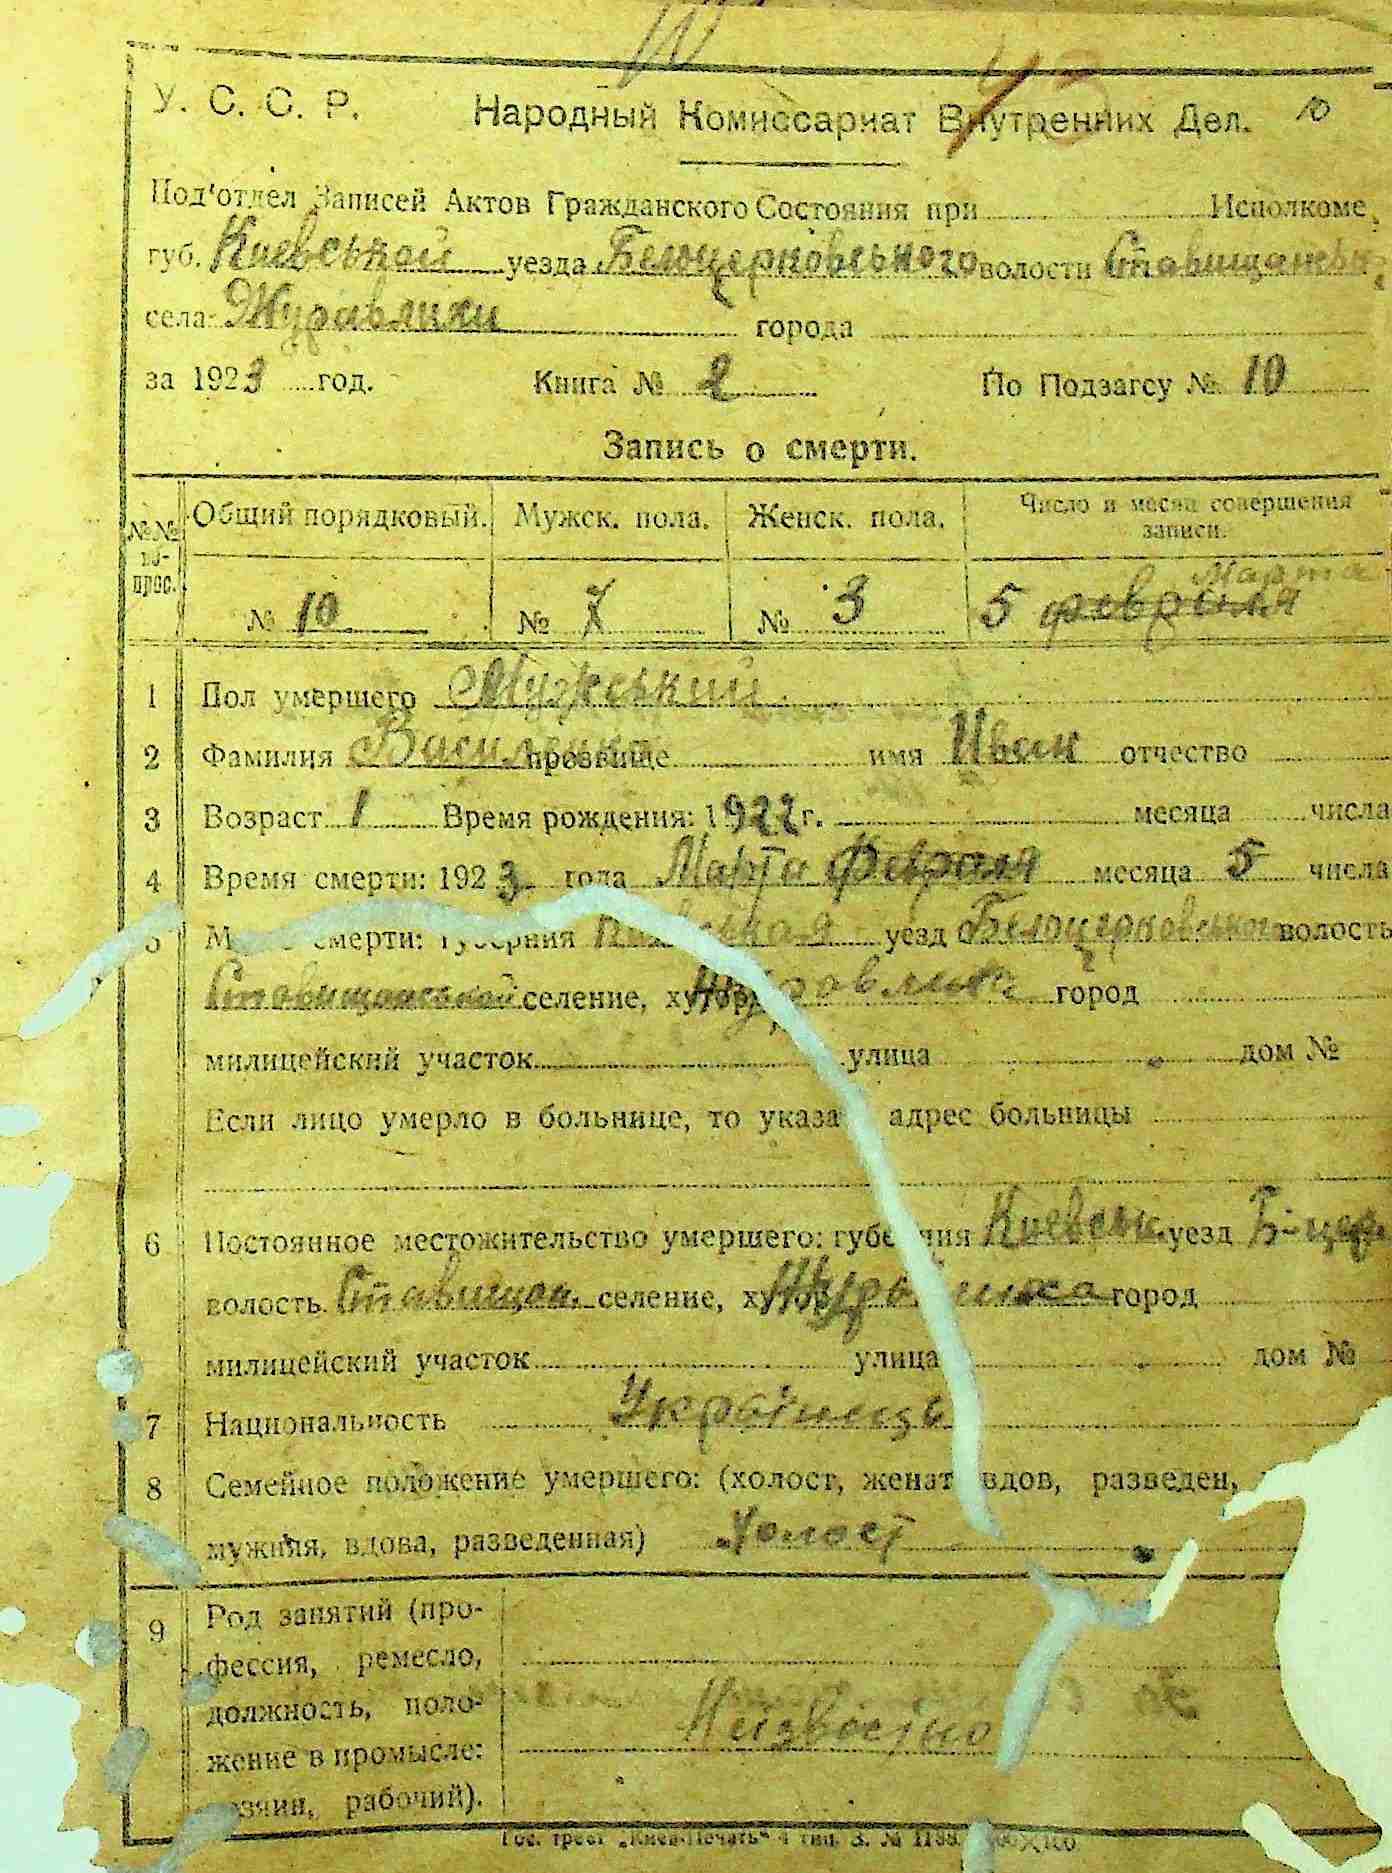 У. С. С. Р. Народный Комиссариат Внутренних Дел. 10
Под'отдел Записей Актов Гражданского Состояния при Исполкоме
губ. Киевськой уезда Белоцерковського волости Ставищанськ
села Журавлихи города
за 1923 год. Книга № 2 По Подзагсу № 10
Запись о смерти.
№№ во- прос. Общий порядковый. Мужск. пола. Женск. пола. Число и месяц совершения записи.
Марта
№ 10 № 7 № 3 5 февраля
1 Пол умершего Мужський
2 Фамилия прозвище имя Иван отчество
3 Возраст 1 Время рождения: 1922 г. месяца числа
4 Время смерти: 1923 года Марта Февраля месяца 5 числа
5 смерти: губерния уезд Белоцерковського волость
Ставищанськой селение, хутор город
милицейский участок улица дом №
Если лицо умерло в больнице, то указа адрес больницы
6 Постоянное местожительство умершего: губерния Киевськ. уезд Б-церк
волость Ставищан. селение, хутор город
милицейский участок улица дом №
7 Национальность Українець
8 Семейное положение умершего: (холост, женат вдов, разведен,
мужняя, вдова, разведенная) Холост
9 Род занятий (про-
фессия, ремесло,
должность, поло-
жение в промысле:
Неизвестно
рабочий).
Гос. трест „Киев-Печать“ 4 тип. З. № 1188.